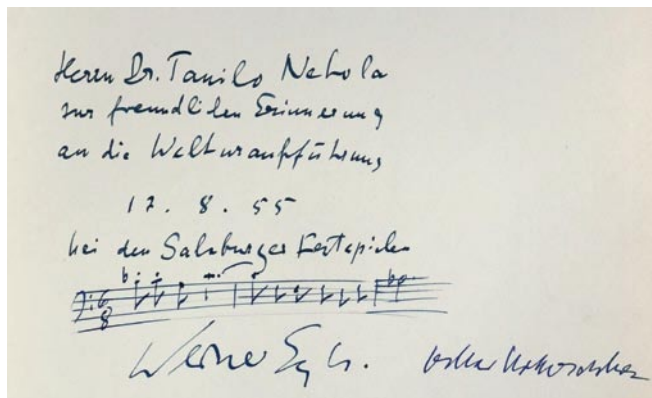 Herrn Dr. Tassilo Nekola
zur freundlichen Erinnerung
an die Welturaufführung
17. 8. 55
bei den Salzburger Festspielen
6
8
Werner Egk.
Oskar Kokoschka